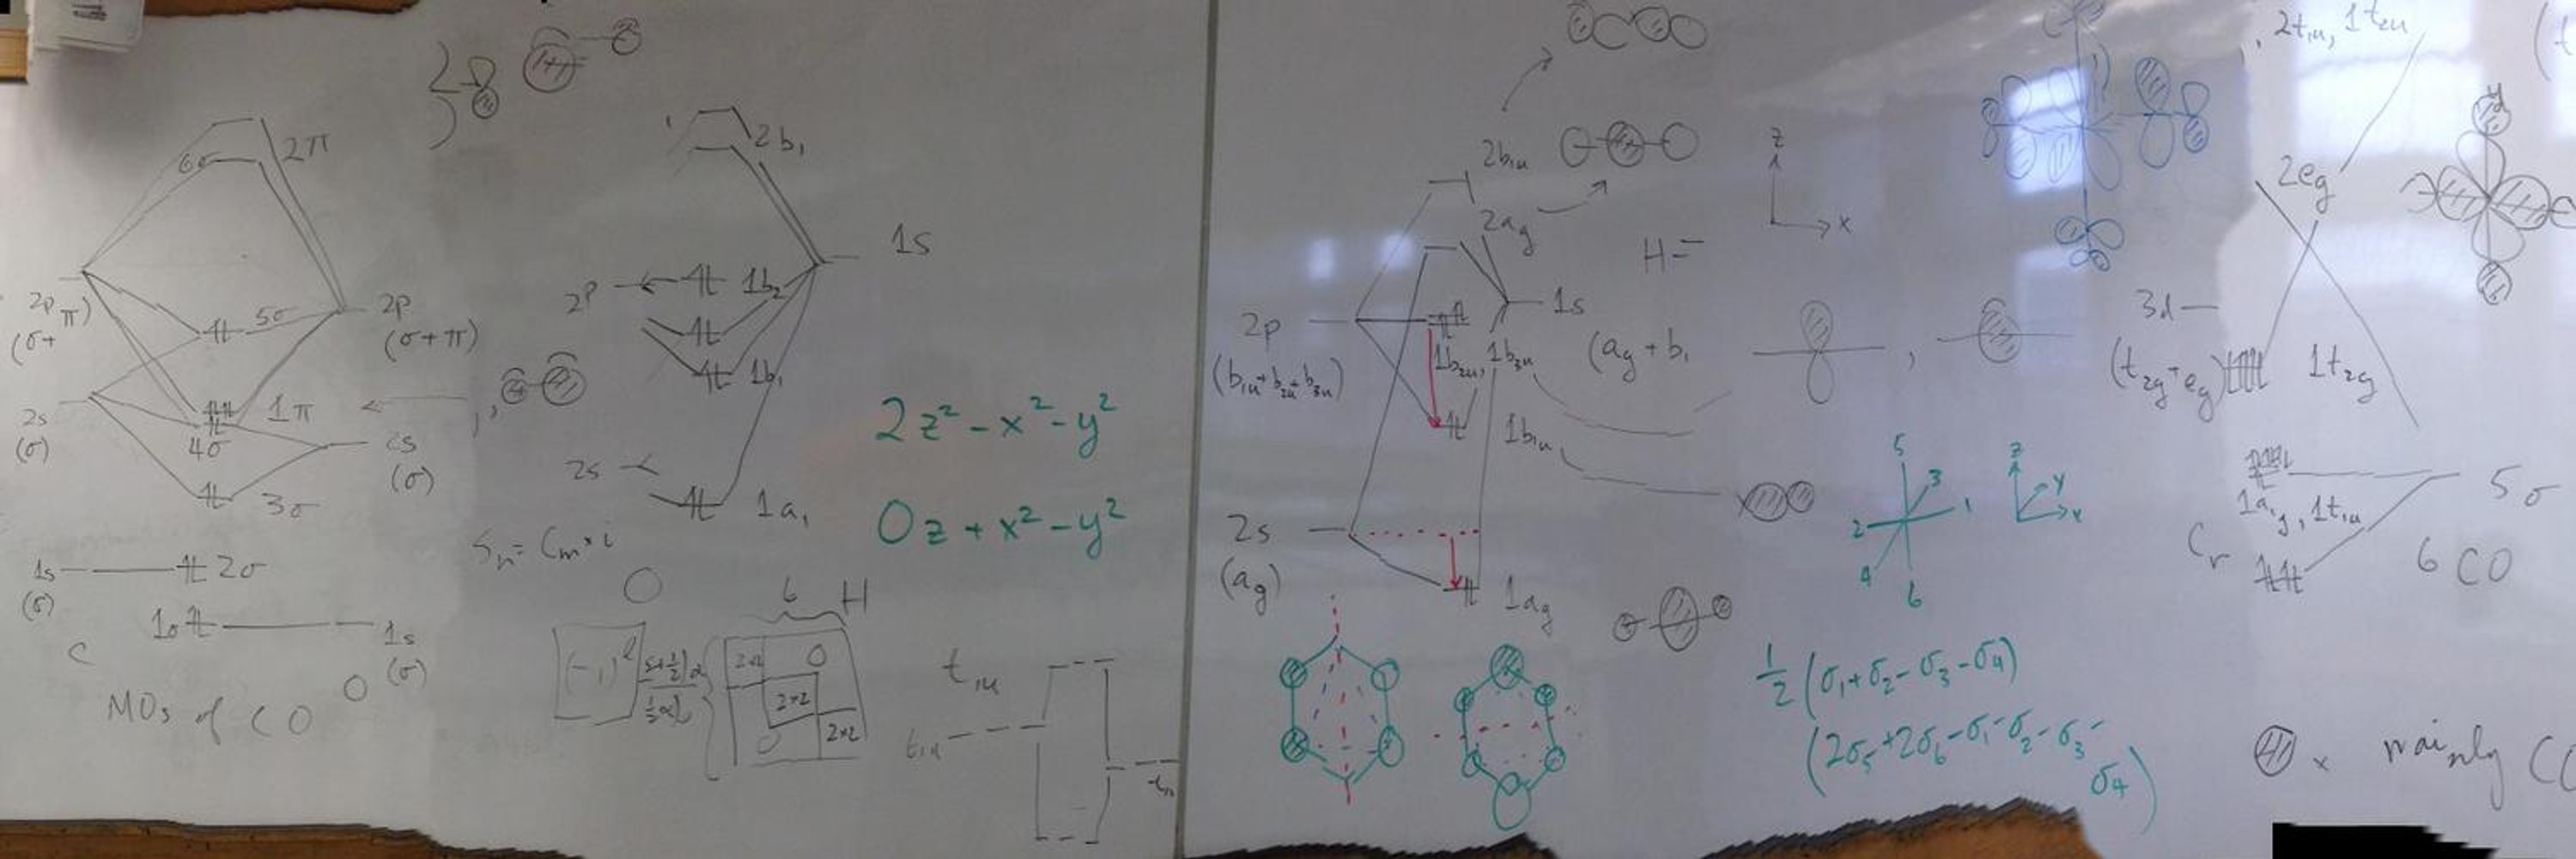 2π
6σ
2p
(σ+π)
5σ
2p
(σ+π)
1π
4σ
2s
(σ)
2s
(σ)
3σ
1s
(σ)
2σ
1σ
1s
(σ)
C
O
MOs of CO
2b₁
1s
2p
1b₂
1b₁
2s
1a₁
Sₙ = Cₘ × i
2z² - x² - y²
0z + x² - y²
O
6 H
2×2
O
2×2
O
2×2
t₁ᵤ
t₁ᵤ
2b₁ᵤ
2a_g
z
x
H
2p
(b₁ᵤ+b₂ᵤ+b₃ᵤ)
1s
1b₂ᵤ, 1b₃ᵤ
(a_g + b₁
1b₁ᵤ
2s
(a_g)
1a_g
5
3
1
2
4
6
z
y
x
½ (σ₁+σ₂-σ₃-σ₄)
(2σ₅+2σ₆-σ₁-σ₂-σ₃-
σ₄)
, 2t₁ᵤ, 1t₂ᵤ
2e_g
3d
(t₂g+e_g)
1t₂g
1a₁g, 1t₁ᵤ
5σ
Cr
6 CO
mainly